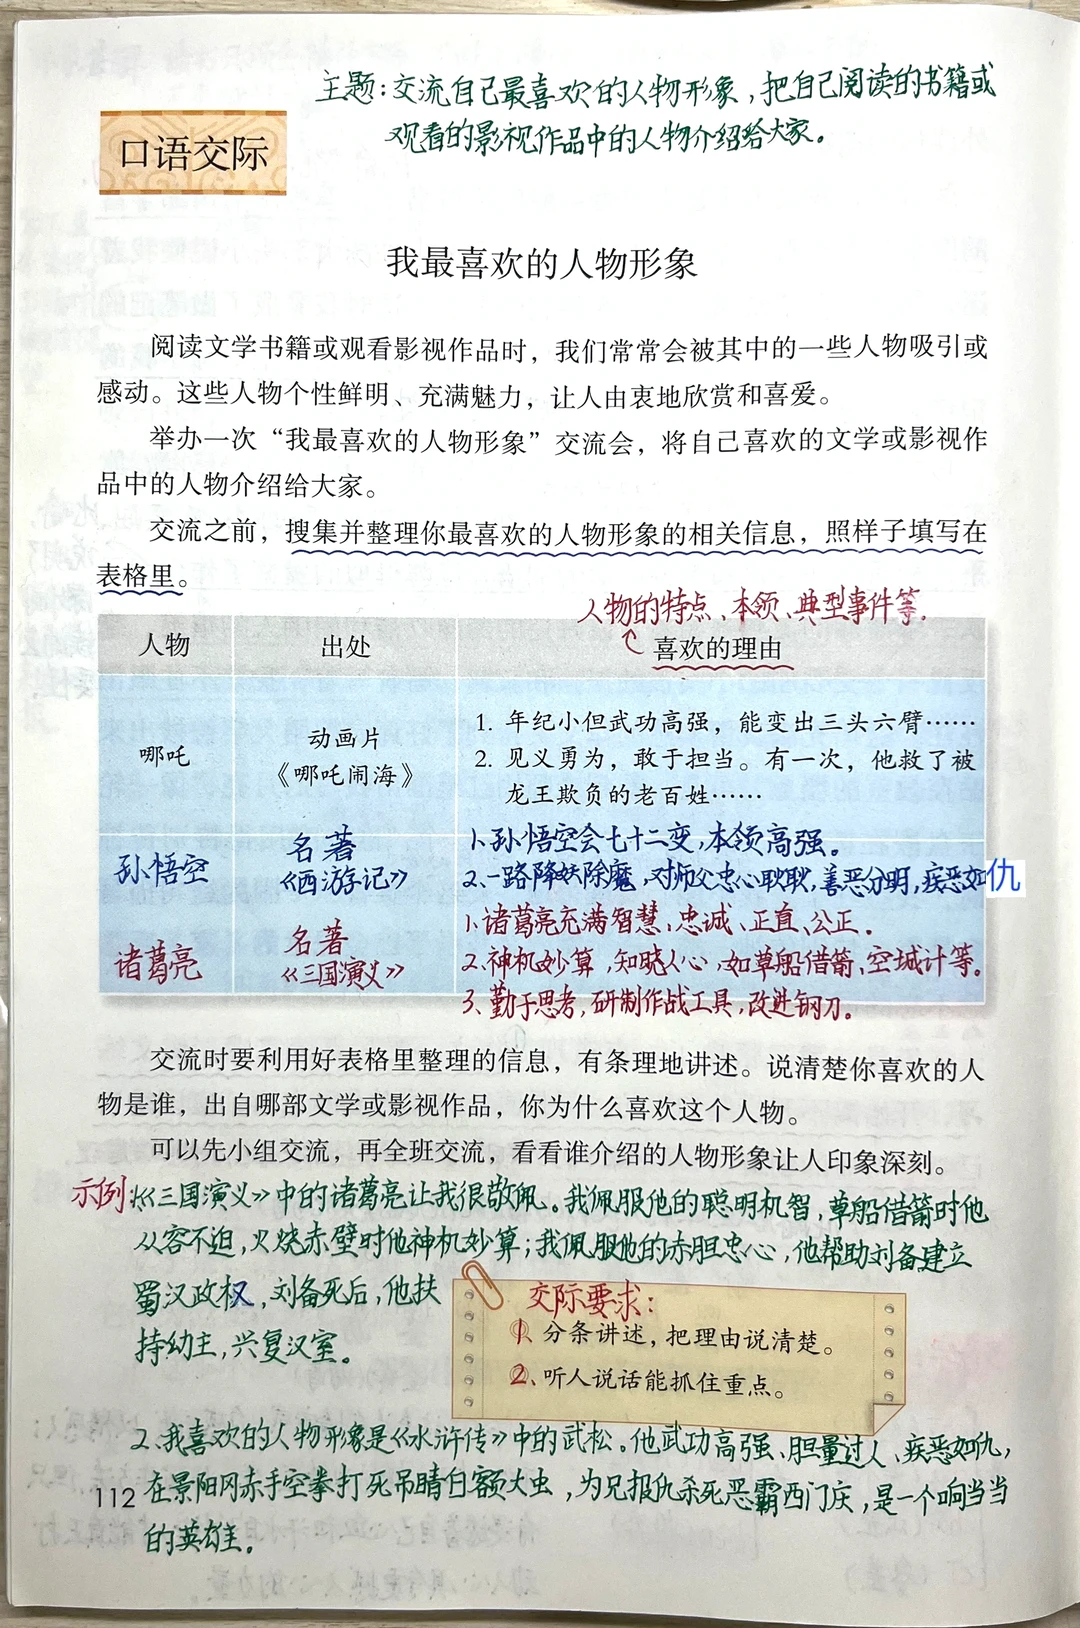 主题：交流自己最喜欢的人物形象，把自己阅读的书籍或
观看的影视作品中的人物介绍给大家。
口语交际
我最喜欢的人物形象
阅读文学书籍或观看影视作品时，我们常常会被其中的一些人物吸引或
感动。这些人物个性鲜明、充满魅力，让人由衷地欣赏和喜爱。
举办一次“我最喜欢的人物形象”交流会，将自己喜欢的文学或影视作
品中的人物介绍给大家。
交流之前，搜集并整理你最喜欢的人物形象的相关信息，照样子填写在
表格里。
人物的特点、本领、典型事件等.
人物 出处 喜欢的理由
哪吒
动画片
《哪吒闹海》
1. 年纪小但武功高强，能变出三头六臂……
2. 见义勇为，敢于担当。有一次，他救了被
龙王欺负的老百姓……
孙悟空
名著
《西游记》
1、孙悟空会七十二变，本领高强。
2、一路降妖除魔，对师父忠心耿耿，善恶分明，疾恶如仇
诸葛亮
名著
《三国演义》
1、诸葛亮充满智慧、忠诚、正直、公正。
2、神机妙算，知晓人心，如草船借箭、空城计等。
3、勤于思考，研制作战工具，改进钢刀。
交流时要利用好表格里整理的信息，有条理地讲述。说清楚你喜欢的人
物是谁，出自哪部文学或影视作品，你为什么喜欢这个人物。
可以先小组交流，再全班交流，看看谁介绍的人物形象让人印象深刻。
示例：1.《三国演义》中的诸葛亮让我很敬佩。我佩服他的聪明机智，草船借箭时他
从容不迫，火烧赤壁时他神机妙算；我佩服他的赤胆忠心，他帮助刘备建立
蜀汉政权，刘备死后，他扶
持幼主，兴复汉室。
交际要求：
1、分条讲述，把理由说清楚。
2、听人说话能抓住重点。
2、我喜欢的人物形象是《水浒传》中的武松。他武功高强、胆量过人、疾恶如仇，
在景阳冈赤手空拳打死吊睛白额大虫，为兄报仇杀死恶霸西门庆，是一个响当当
的英雄。
112